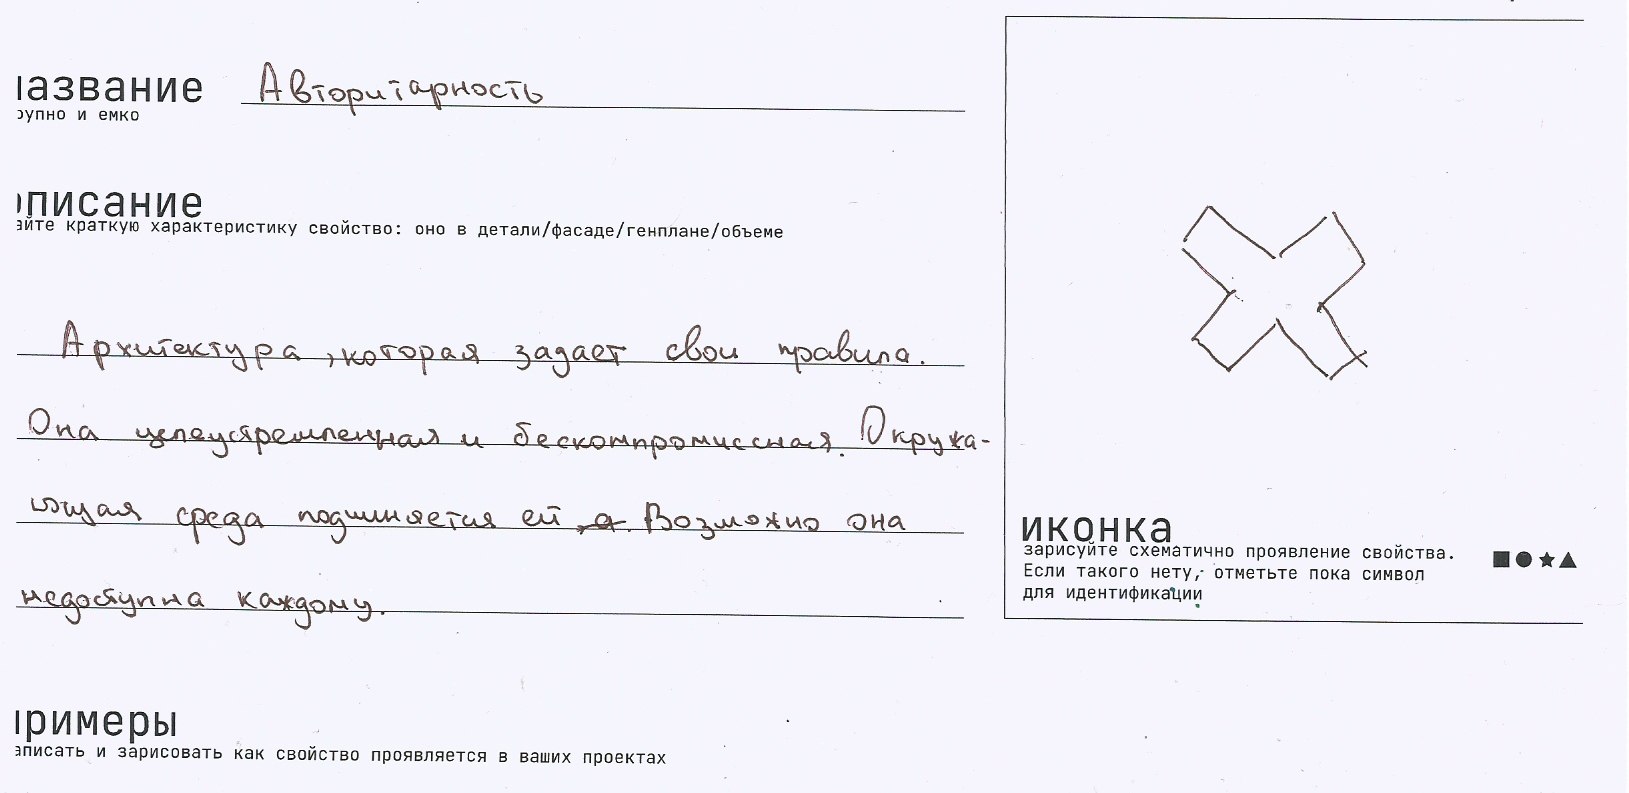 название Авторитарность
крупно и емко
описание
дайте краткую характеристику свойство: оно в детали/фасаде/генплане/объеме
Архитектура, которая задает свои правила.
Она целеустремленная и бескомпромиссная. Окружа-
ющая среда подчиняется ей. Возможно она
недоступна каждому.
иконка
зарисуйте схематично проявление свойства.
Если такого нету, отметьте пока символ
для идентификации
примеры
записать и зарисовать как свойство проявляется в ваших проектах